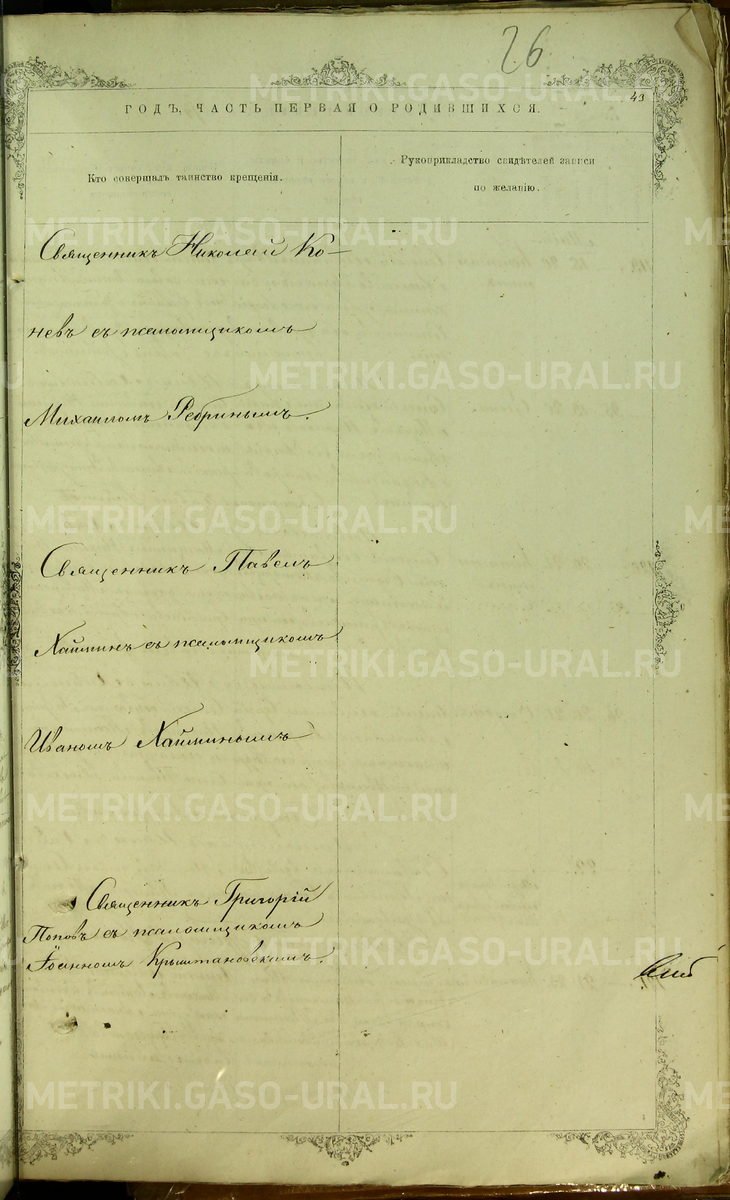 26
43
ГОДЪ, ЧАСТЬ ПЕРВАЯ О РОДИВШИХСЯ.
Кто совершалъ таинство крещенія.
Рукоприкладство свидѣтелей записи
по желанію.
Священникъ Николай Ко-
невъ съ псаломщикомъ
Михаиломъ Ребринымъ.
Священникъ Павелъ
Хайминъ съ псаломщикомъ
Иваномъ Хайминымъ
Священникъ Григорій
Поповъ съ псаломщикомъ
Іоанномъ Крыштановскимъ.
METRIKI.GASO-URAL.RU